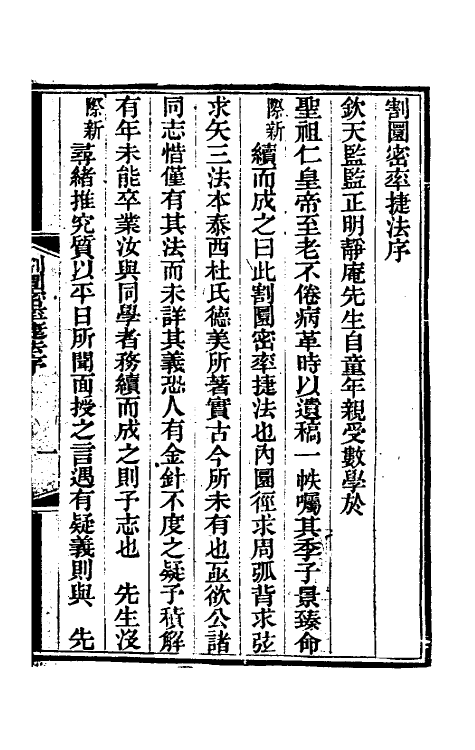 割圜密率捷法序
欽天監監正明靜庵先生自童年親受數學於
聖祖仁皇帝至老不倦病革時以遺稿一帙囑其季子景臻命
際新續而成之曰此割圜密率捷法也內圜徑求周弧背求弦
求矢三法本泰西杜氏德美所著實古今所未有也亟欲公諸
同志惜僅有其法而未詳其義恐人有金針不度之疑予積解
有年未能卒業汝與同學者務續而成之則予志也 先生沒
際新尋緒推究質以平日所聞面授之言遇有疑義則與 先
割圜密率捷法序
一